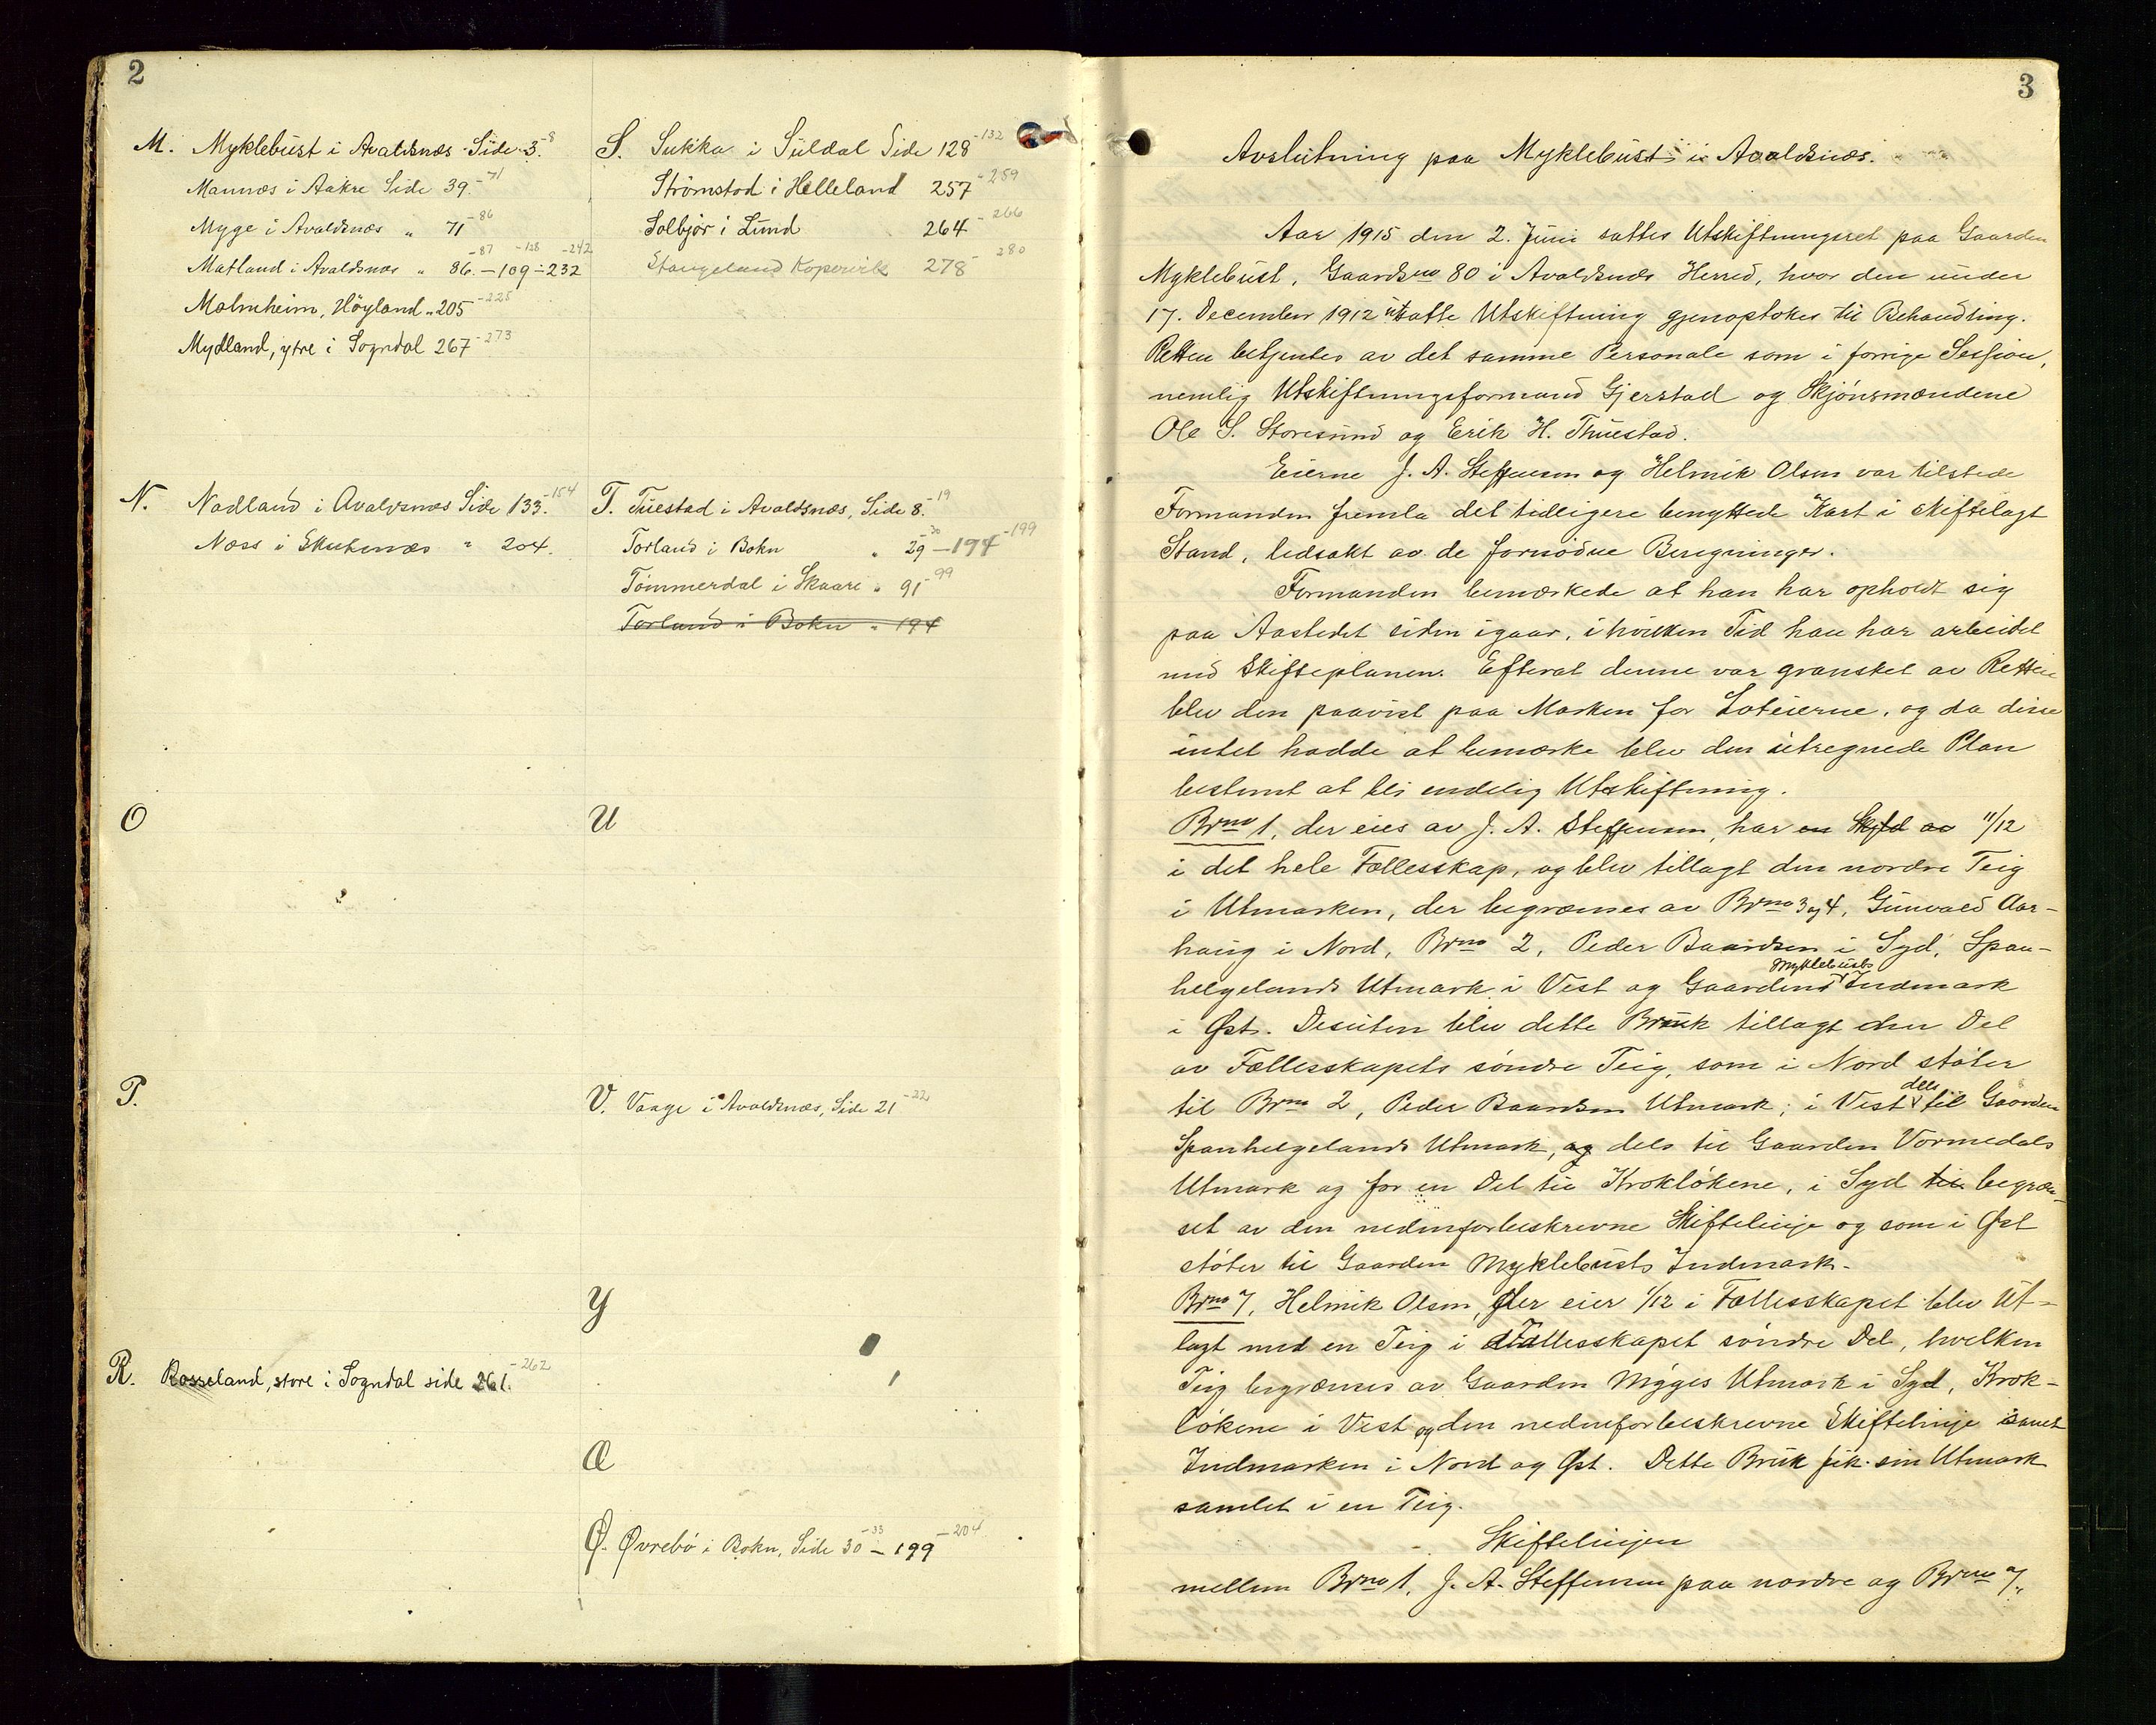 2
M. Myklebust i Avaldsnæs Side 3.-8
Mannæs i Aakre Side 39.-71
Myge i Avaldsnæs " 71-86
Matland i Avaldsnæs " 86.-87 -109-128 ÷232-242
Malmheim, Höyland " 205-225
Mydland, ytre i Sogndal 267-273
N. Nadland i Avaldsnæs Side 133.-154
Næss i Skudenæs " 204.
O
P.
R. Rosseland, store i Sogndal side 261.-262
S. Sukka i Suldal Side 128-132
Strömstad i Helleland 257-259
Solbjör i Lund 264-266
Stangeland Kopervik 278-280
T. Tuestad i Avaldsnæs, Side 8.-19
Torland i Bokn " 29-30 -194-199
Tömmerdal i Skaare " 91-99
Torland i Bokn " 194
U
V. Vaage i Avaldsnæs, Side 21-22
Y
Æ
Ø. Øvrebö i Bokn, Side 30-33 -199-204
3
Avslutning paa Myklebust i Avaldsnæs.
Aar 1915 den 2. Juni sattes Utskiftningsret paa Gaarden
Myklebust, Gaardsno 80 i Avaldsnæs Herred, hvor den under
17. December 1912 utsatte Utskiftning gjenoptokes til Behandling.
Retten betjentes av det samme Personale som i forrige Session,
nemlig Utskiftningsformand Gjerstad og Skjönsmændene
Ole S. Storesund og Erik H. Thuestad.
Eierne J. A. Steffensen og Helmik Olsen var tilstede
Formanden fremla det tidligere benyttede Kart i skiftelagt
Stand, ledsakt av de fornödne Beregninger.
Formanden bemærkede at han har opholdt sig
paa Aastedet siden igaar, i hvilken Tid han har arbeidet
med Skifteplanen. Efterat denne var gransket av Retten
blev den paavist paa Marken for Loteierne, og da disse
intet hadde at bemærke blev den utregnede Plan
bestemt at bli endelig Utskiftning.
Brno 1, der eies av J. A. Steffensen, har en Skyld av 11/12
i det hele Fællesskap, og blev tillagt den nordre Teig
i Utmarken, der begrænses av Brno 3 og 4, Gunvald Aar-
haug i Nord, Brno 2, Peder Baardsen i Syd, Span-
helgelands Utmark i Vest og Gaardens Myklebusts Indmark
i Øst. Desuten blev dette Bruk tillagt den Del
av Fællesskapets söndre Teig, som i Nord stöter
til Brno 2, Peder Baardsens Utmark; i Vest dels til Gaarden
Spanhelgelands Utmark, og dels til Gaarden Vormedals
Utmark og for en Del til Kroklökene, i Syd til begræn-
set av den nedenforbeskrevne Skiftelinje og som i Øst
stöter til Gaarden Myklebusts Indmark.
Brno 7, Helmik Olsen, der eier 1/12 i Fællesskapet blev Ut-
lagt med en Teig i Fællesskapet söndre Del, hvelken
Teig begrænses av Gaarden Mygges Utmark i Syd, Krok-
lökene i Vest og den nedenforbeskrevne Skiftelinje samt
Indmarken i Nord og Øst. Dette Bruk fik sin Utmark
samlet i en Teig.
Skiftelinjen
mellem Brno 1, J. A. Steffensen paa nordre og Brno 7,